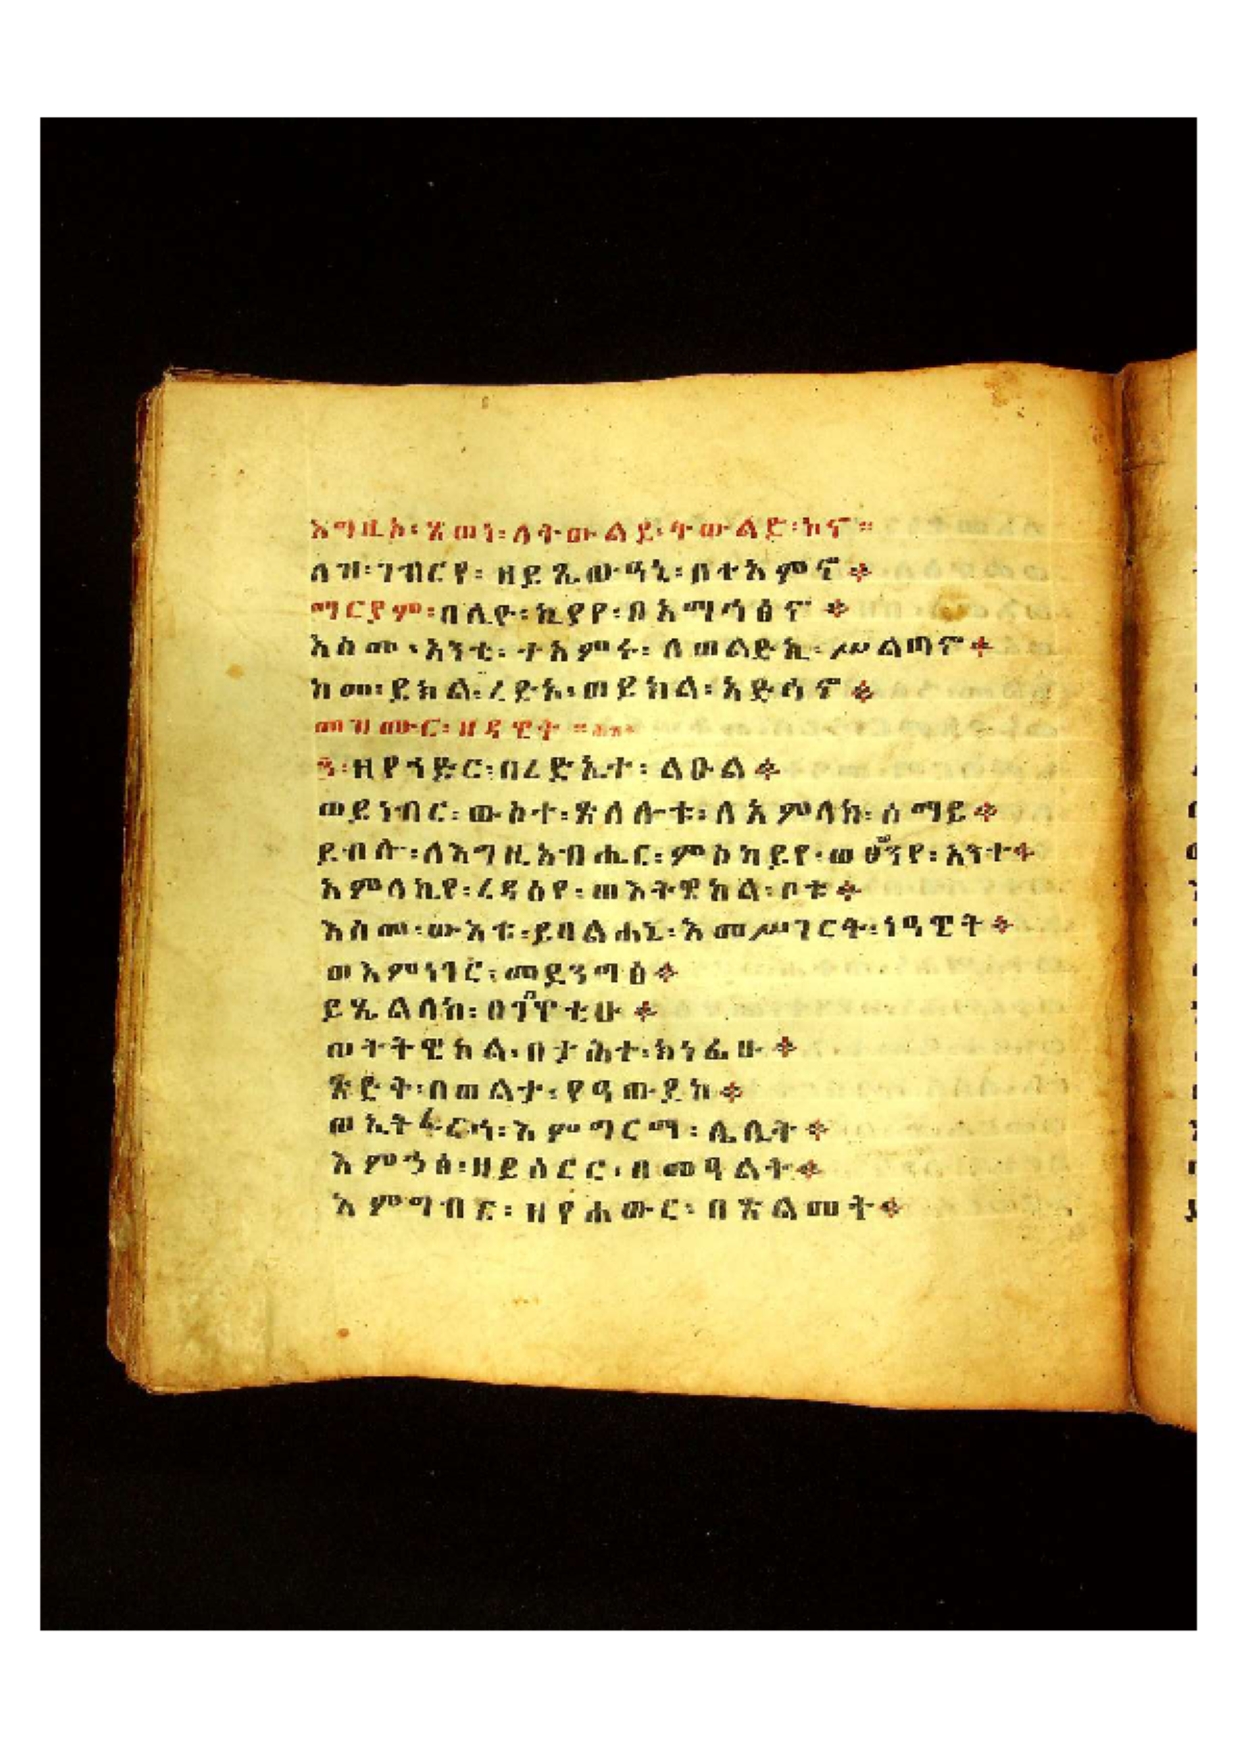 እግዚኦ፡ ጼወነ፡ ለትውልደ፡ ትውልድ፡ ኮኖ።
ለዝ፡ ገብርየ፡ ዘይጼውዓኒ፡ በተአምኖ።
ማርያም፡ በሊዮ፡ ኪያየ፡ በአማኅፅኖ።
እስመ፡ አንቲ፡ ታአምሩ፡ ለወልድኪ፡ ሥልጣኖ።
ከመ፡ ይክል፡ ረድአ፡ ወይክል፡ አድኅኖ።
መዝሙር፡ ዘዳዊት።
፺፡ ዘየኀድር፡ በረድኤተ፡ ልዑል።
ወይነብር፡ ውስተ፡ ጽላሎቱ፡ ለአምላክ፡ ሰማይ።
ይብሎ፡ ለእግዚአብሔር፡ ምስካይየ፡ ወፀወንየ፡ አንተ።
አምላኪየ፡ ረዳኢየ፡ ወእትዌከል፡ ቦቱ።
እስመ፡ ውእቱ፡ ይባልሐኒ፡ እመሥገርት፡ ነዓዊት።
ወእምነገር፡ መደንግፅ።
ይጼልለከ፡ በገቦቲሁ።
ወትትዌከል፡ በታሕተ፡ ክነፊሁ።
ጽድቅ፡ በወልታ፡ የዓውደከ።
ወኢትፈርህ፡ እምግርማ፡ ሌሊት።
እምኀፅ፡ ዘይሰርር፡ በመዓልት።
እምግብር፡ ዘየሐውር፡ በጽልመት።